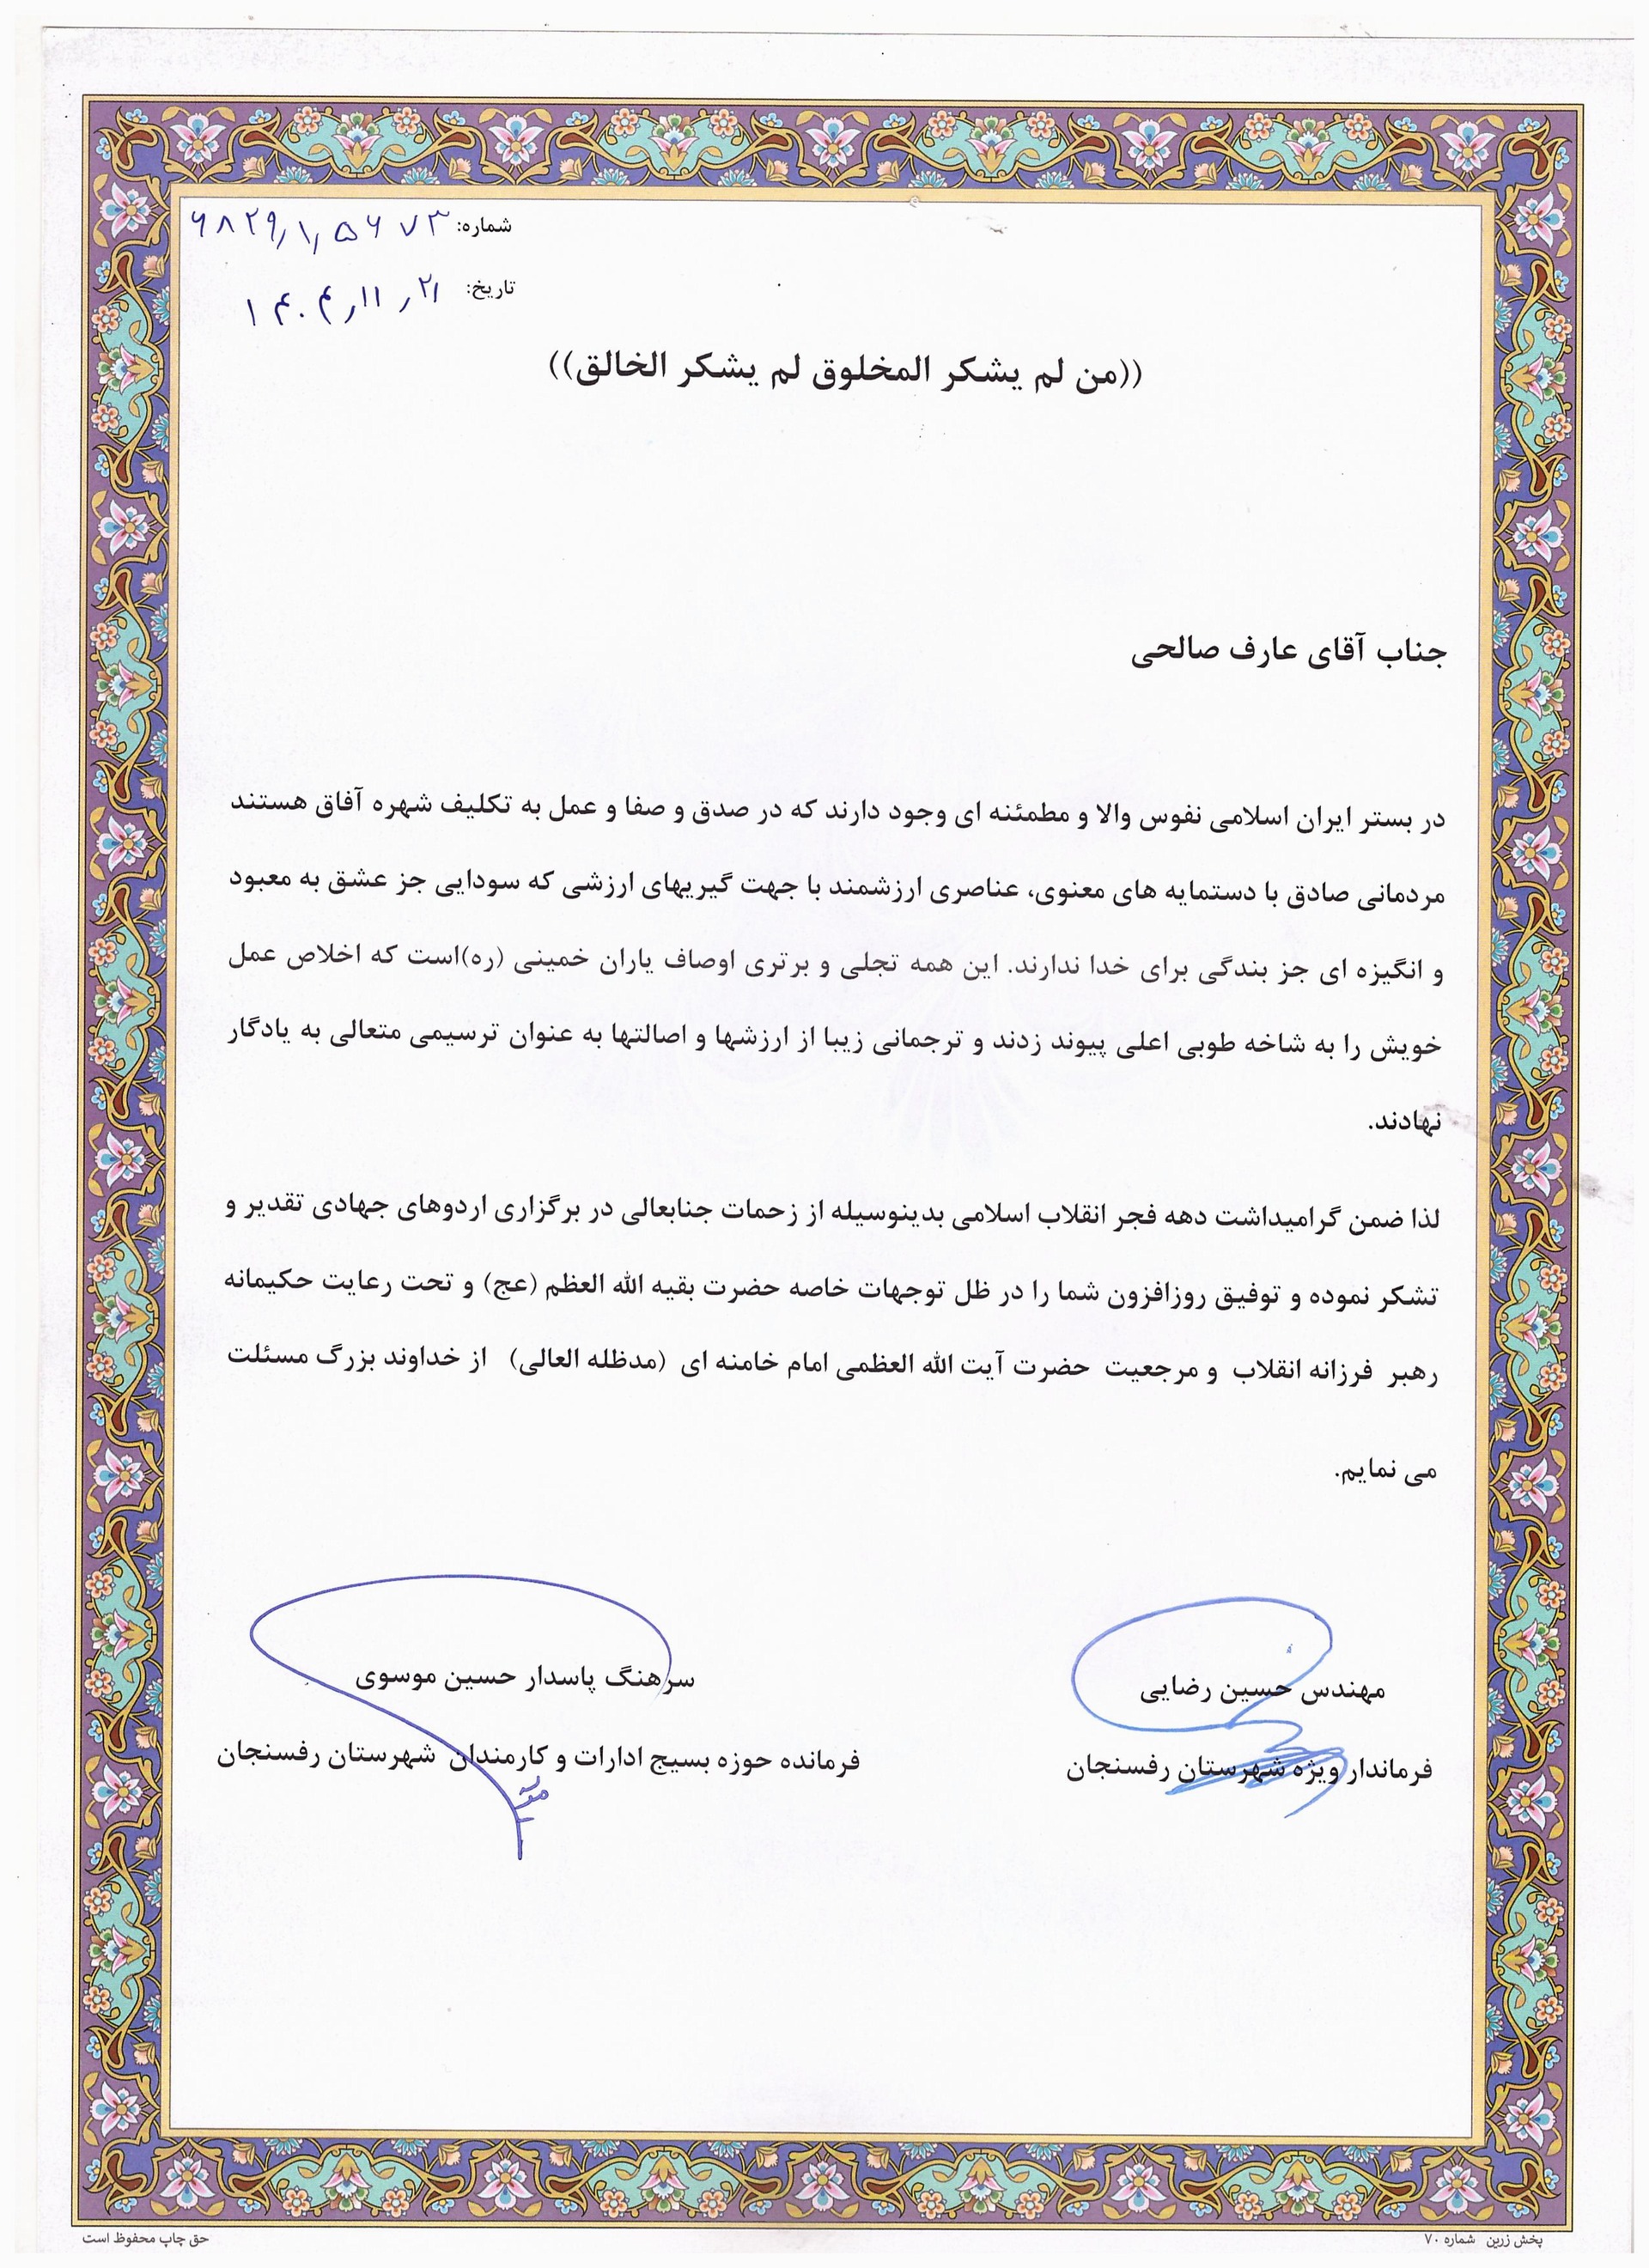 شماره: ۶۸۲۹/۱/۵۶۷۳
تاریخ: ۱۴۰۴/۱۱/۲۱
((من لم یشکر المخلوق لم یشکر الخالق))
جناب آقای عارف صالحی
در بستر ایران اسلامی نفوس والا و مطمئنه ای وجود دارند که در صدق و صفا و عمل به تکلیف شهره آفاق هستند
مردمانی صادق با دستمایه های معنوی، عناصری ارزشمند با جهت گیریهای ارزشی که سودایی جز عشق به معبود
و انگیزه ای جز بندگی برای خدا ندارند. این همه تجلی و برتری اوصاف یاران خمینی (ره)است که اخلاص عمل
خویش را به شاخه طوبی اعلی پیوند زدند و ترجمانی زیبا از ارزشها و اصالتها به عنوان ترسیمی متعالی به یادگار
نهادند.
لذا ضمن گرامیداشت دهه فجر انقلاب اسلامی بدینوسیله از زحمات جنابعالی در برگزاری اردوهای جهادی تقدیر و
تشکر نموده و توفیق روزافزون شما را در ظل توجهات خاصه حضرت بقیه الله العظم (عج) و تحت رعایت حکیمانه
رهبر فرزانه انقلاب و مرجعیت حضرت آیت الله العظمی امام خامنه ای (مدظله العالی) از خداوند بزرگ مسئلت
می نمایم.
مهندس حسین رضایی
فرماندار ویژه شهرستان رفسنجان
سرهنگ پاسدار حسین موسوی
فرمانده حوزه بسیج ادارات و کارمندان شهرستان رفسنجان
پخش زرین شماره ۷۰
حق چاپ محفوظ است